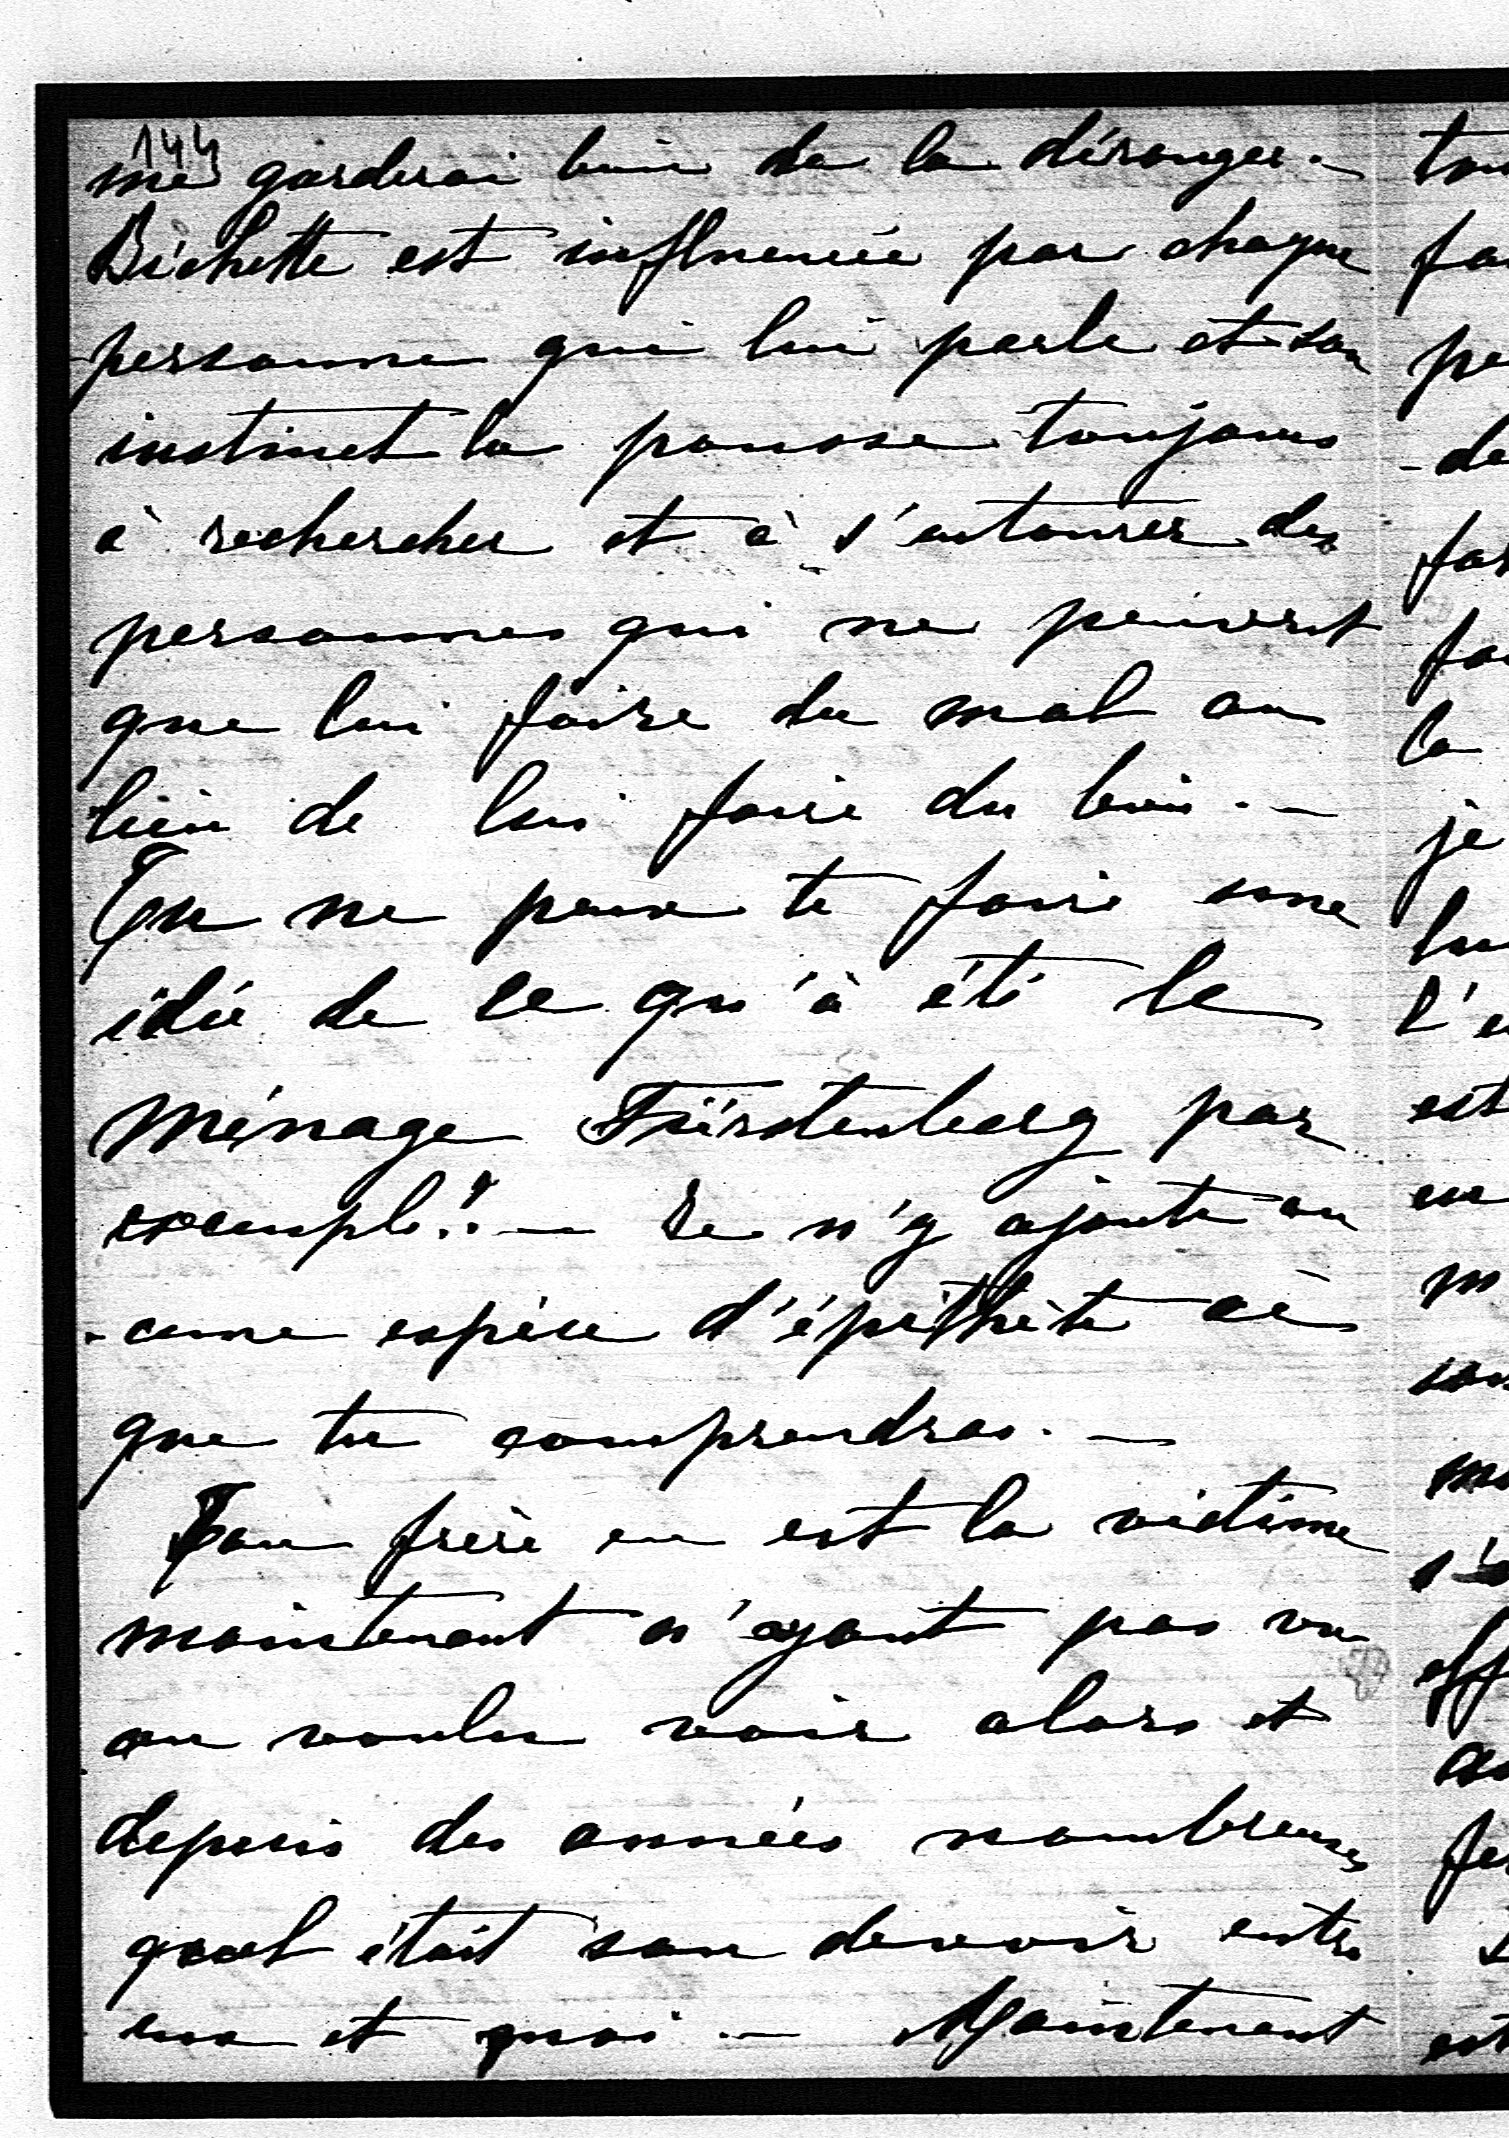 144
me garderai bien de la déranger. —
Bichette est influencée par chaque
personne qui lui parle et son
instinct la pousse toujours
à rechercher et à s'entourer des
personnes qui ne peuvent
que lui faire du mal au
lieu de lui faire du bien. —
Tu ne peux te faire une
idée de ce qu'à été le
ménage Fürstenberg par
exemple!! — Je n'y ajoute au
-cune espèce d'épithète ce
que tu comprendras. —
Ton frère en est la victime
maintenant n'ayant pas vu
ou voulu voir alors et
depuis des années nombreuses
quel était son devoir entre
et — Maintenant